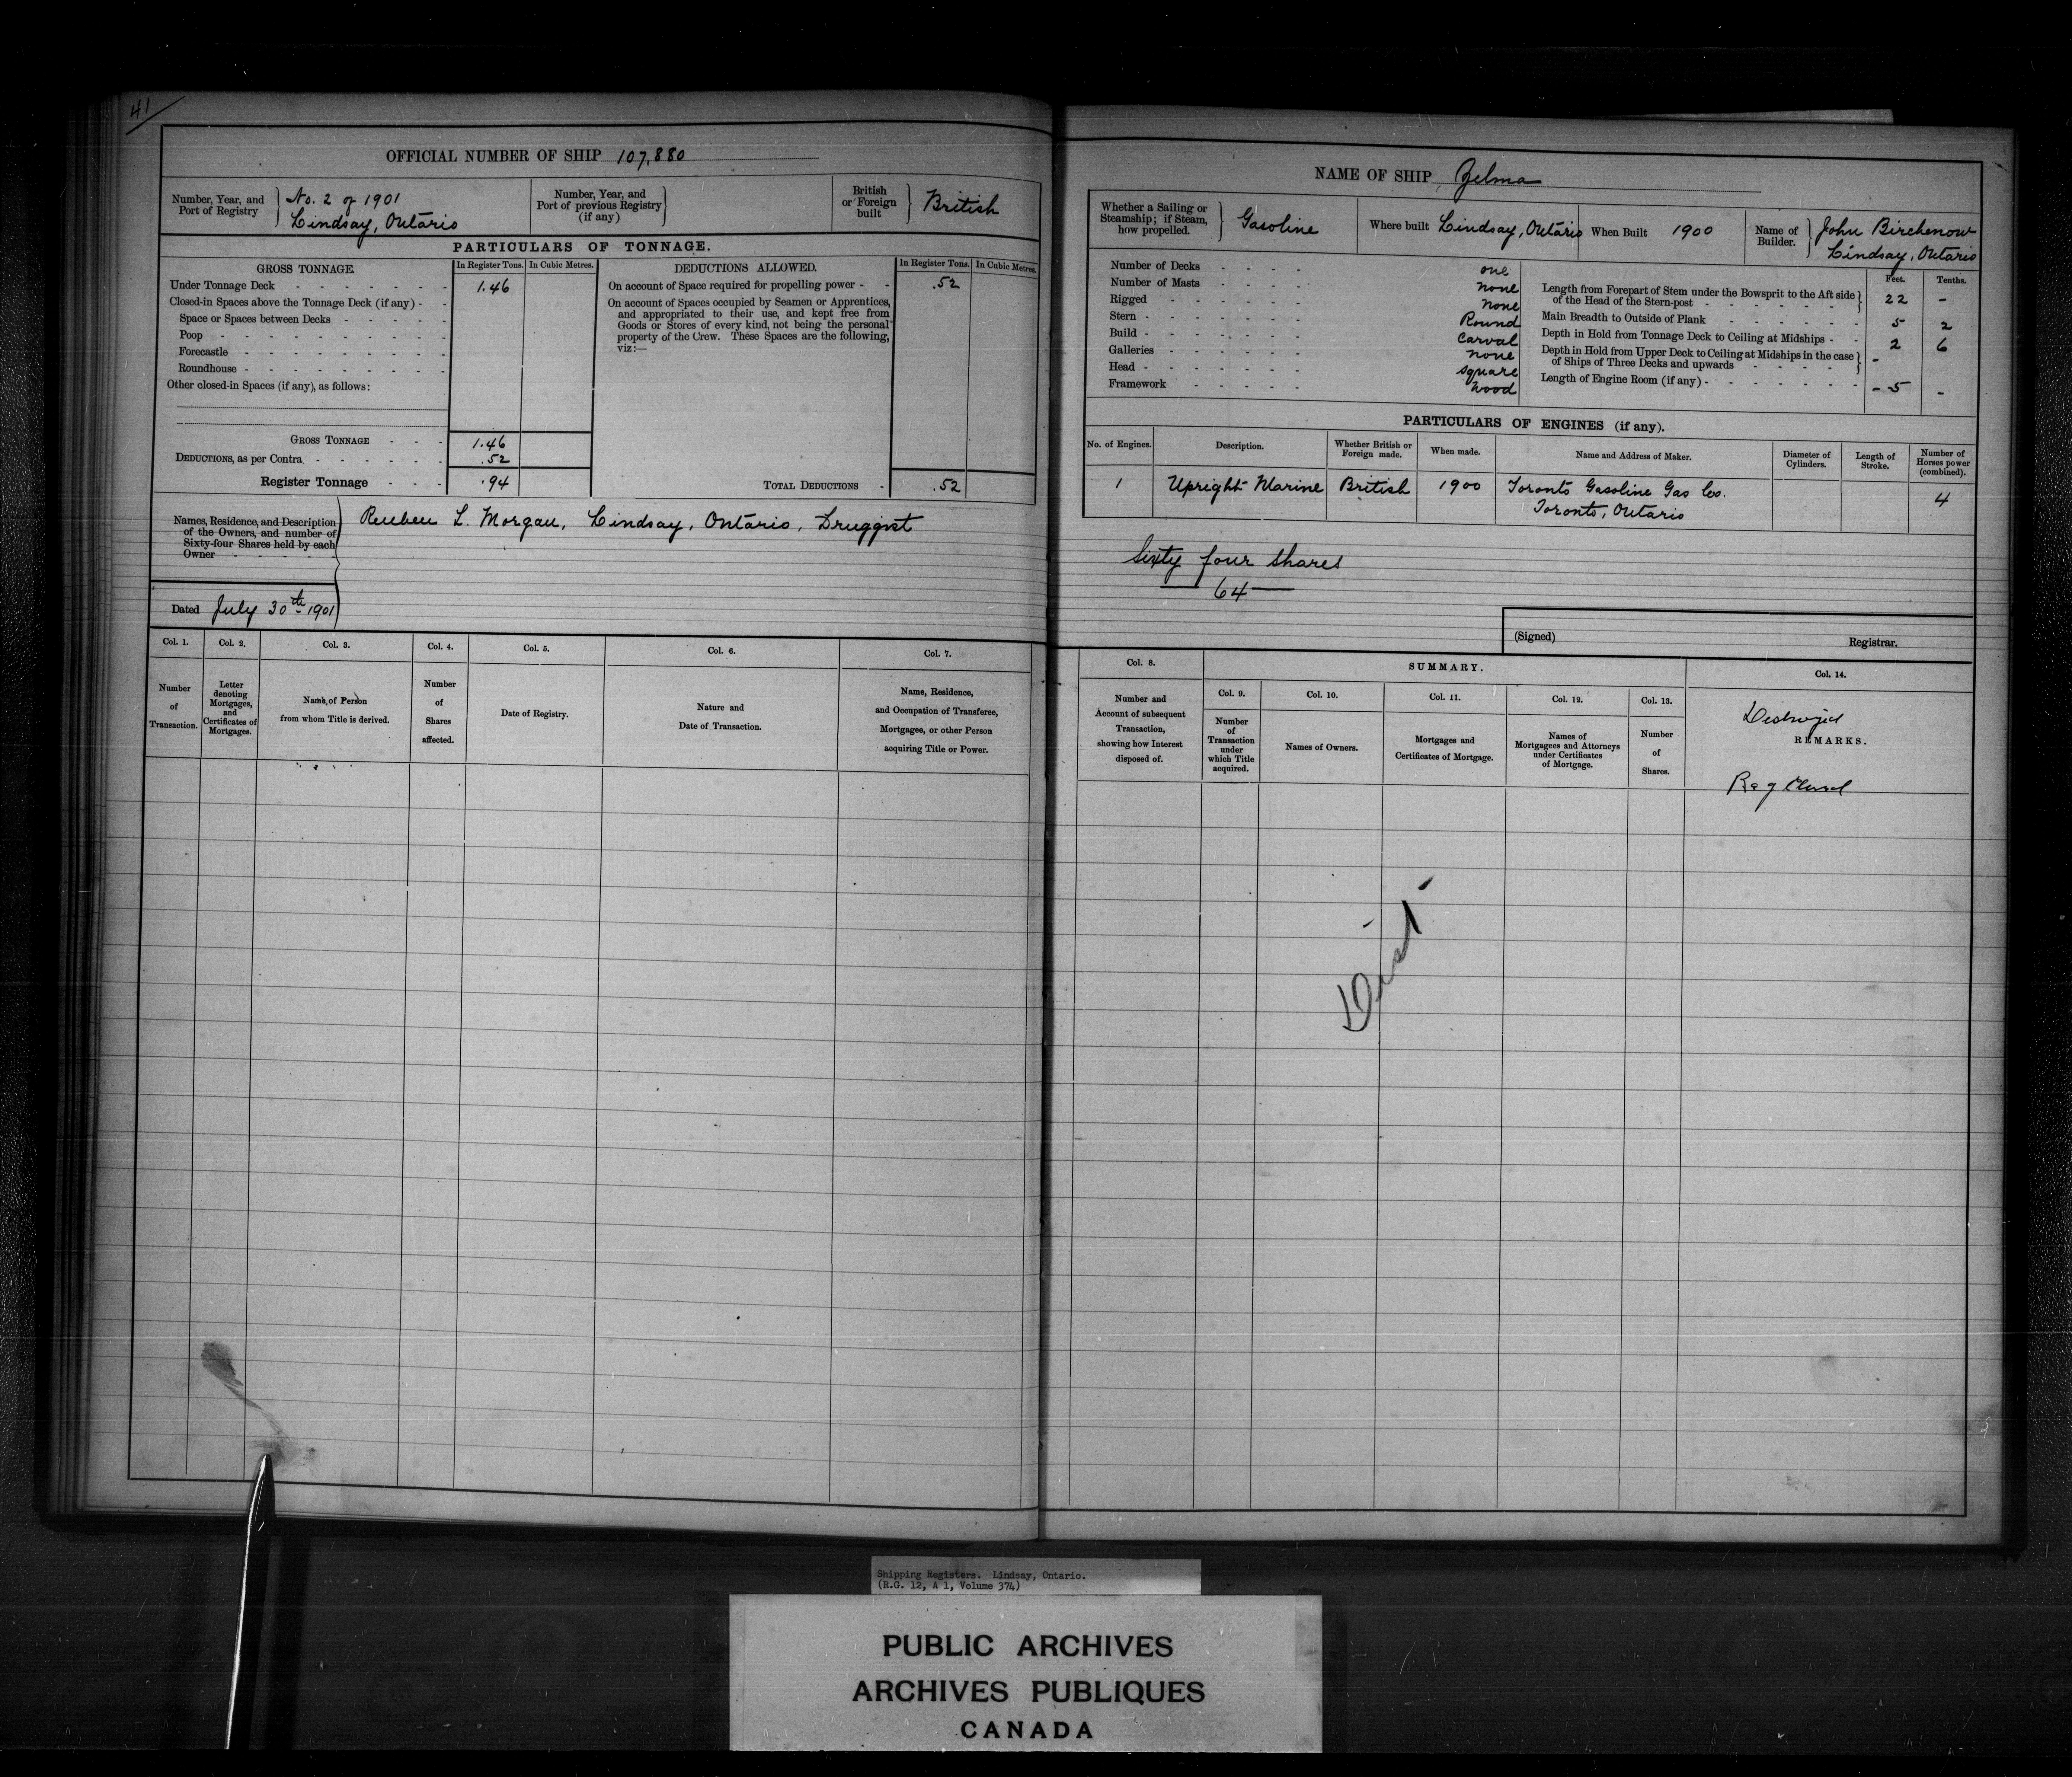 41
OFFICIAL NUMBER OF SHIP 107,880
Number, Year, and Port of Registry } No. 2 of 1901
Lindsay, Ontario
Number, Year, and Port of previous Registry (if any) }
British or Foreign built } British
PARTICULARS OF TONNAGE.
GROSS TONNAGE. In Register Tons. In Cubic Metres.
Under Tonnage Deck - - - - - - 1.46
Closed-in Spaces above the Tonnage Deck (if any) - -
Space or Spaces between Decks - - - - -
Poop - - - - - - - - -
Forecastle - - - - - - - -
Roundhouse - - - - - - - -
Other closed-in Spaces (if any), as follows:
GROSS TONNAGE - - - 1.46
DEDUCTIONS, as per Contra - - - - - - .52
Register Tonnage - - - .94
DEDUCTIONS ALLOWED. In Register Tons. In Cubic Metres.
On account of Space required for propelling power - - .52
On account of Spaces occupied by Seamen or Apprentices,
and appropriated to their use, and kept free from
Goods or Stores of every kind, not being the personal
property of the Crew. These Spaces are the following,
viz:—
TOTAL DEDUCTIONS - .52
Names, Residence, and Description
of the Owners, and number of
Sixty-four Shares held by each
Owner - - - - - -
Reuben L. Morgan, Lindsay, Ontario, Druggist
Dated July 30th 1901
Col. 1. Col. 2. Col. 3. Col. 4. Col. 5. Col. 6. Col. 7.
Number of Transaction.
Letter denoting Mortgages, and Certificates of Mortgages.
Name of Person from whom Title is derived.
Number of Shares affected.
Date of Registry.
Nature and Date of Transaction.
Name, Residence, and Occupation of Transferee, Mortgagee, or other Person acquiring Title or Power.
NAME OF SHIP Zelma
Whether a Sailing or Steamship; if Steam, how propelled. } Gasoline
Where built Lindsay, Ontario
When Built 1900
Name of Builder. } John Birchenow
Lindsay, Ontario
Number of Decks - - - - one
Number of Masts - - - - none
Rigged - - - - - - none
Stern - - - - - - Round
Build - - - - - - Carval
Galleries - - - - - none
Head - - - - - - square
Framework - - - - - wood
Feet. Tenths.
Length from Forepart of Stem under the Bowsprit to the Aft side
of the Head of the Stern-post - - - - - } 22 -
Main Breadth to Outside of Plank - - - - - - 5 2
Depth in Hold from Tonnage Deck to Ceiling at Midships - - 2 6
Depth in Hold from Upper Deck to Ceiling at Midships in the case
of Ships of Three Decks and upwards - - - - } -
Length of Engine Room (if any) - - - - - - - 5 -
PARTICULARS OF ENGINES (if any).
No. of Engines. Description. Whether British or Foreign made. When made. Name and Address of Maker. Diameter of Cylinders. Length of Stroke. Number of Horses power (combined).
1 Upright Marine British 1900 Toronto Gasoline Gas Co. 4
Toronto, Ontario
Sixty four shares
64
(Signed) Registrar.
Col. 8. SUMMARY. Col. 14.
Col. 9. Col. 10. Col. 11. Col. 12. Col. 13.
Number and Account of subsequent Transaction, showing how Interest disposed of.
Number of Transaction under which Title acquired.
Names of Owners.
Mortgages and Certificates of Mortgage.
Names of Mortgagees and Attorneys under Certificates of Mortgage.
Number of Shares.
Destroyed
REMARKS.
Reg Closed
Shipping Registers. Lindsay, Ontario.
(R.G. 12, A 1, Volume 374)
PUBLIC ARCHIVES
ARCHIVES PUBLIQUES
CANADA